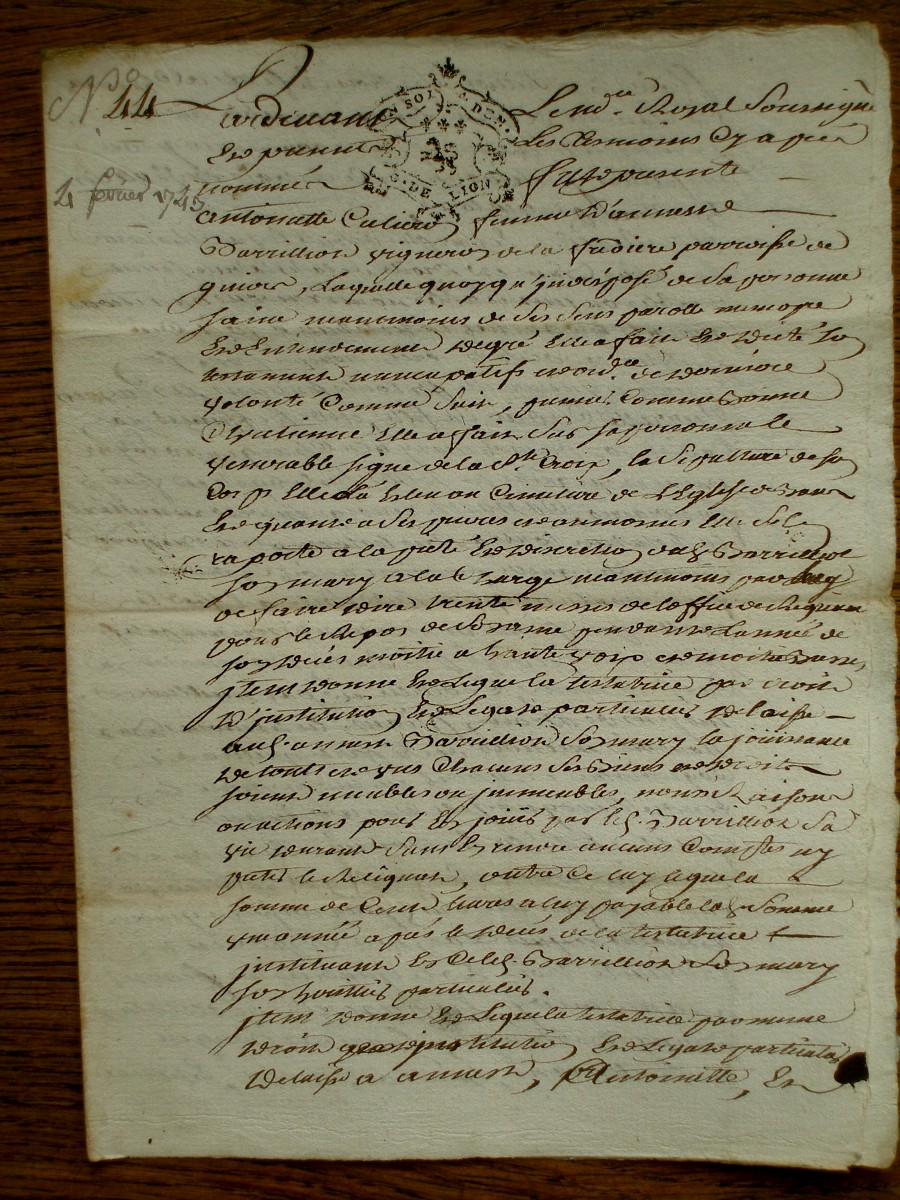 N° 44
4 février 1745
Pardevant Le nre Royal Soussigné
SOL DEN.
G. DE LION
Et en presence Les tesmoins Cy apres
nommés fut presente
antoinette femme d'annemd
Darrillion vigneron de la parroisse de
Laquelle quoyqu'jndisposé de Sa personne
saine neantmoins de Ses Sens parolle memoire
Et Entendement de gré Elle a fait Et dicté So
testament nuncupatif et ord.ce de derniere
volonté Comme Suit, premier. Comme Bonne
Chretienne Elle a fait Sur Sa personne le
venerable Signe de la Ste Croix, la Sepulture de So
Corps Elle la Eleu au Cimetiere de L'Eglise de
Et quant a Ses prieres et aumones Elle S'en
raporte a la pieté Et discretion dud. Darrillion
Son mary a la Charge neantmoins par luy
de faire dire trente messes de l'office de Requiem
pour le Repos de Son ame pendant L'année de
Son deces moitié a haute voix et moitié Basse,
jtem donne Et Legue La testatrice par droit
D'jnstitution Et Legat particulier Delaisse
aud. annemd Darrillion Son mary la jouissance
de touts et vns Chacuns Ses Biens et droits
soient meubles ou jmmeubles, noms Raisons
ou actions pour En jouir par led. Darrillion Sa
vie durant Sans En rendre aucuns Comptes ny
prester le Reliquat, outre Ce luy legue la
Somme de Cent livres a luy payable lad. Somme
vne année après le deces de la testatrice
jnstituant En Ce led. Darrillion Son mary
Son heritier particulier.
jtem donne Et Legue La testatrice par meme
droit jnstitution Et Legat particulier
Delaisse a annemd, Antoinette, Et